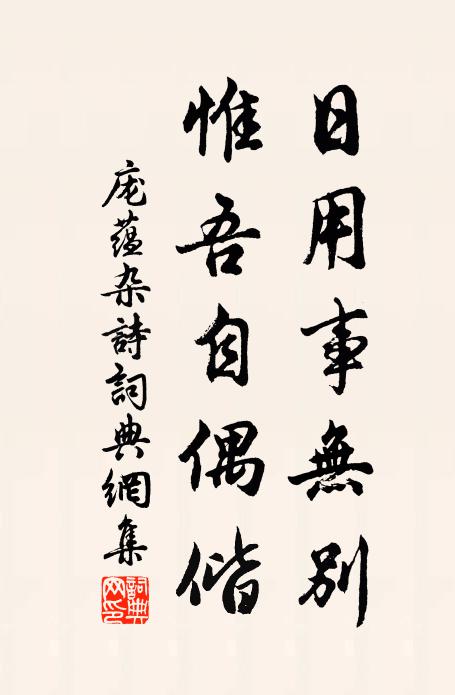 日用事無別
惟吾自偶偕
庞蕴杂詩詞典網集
詞典网印